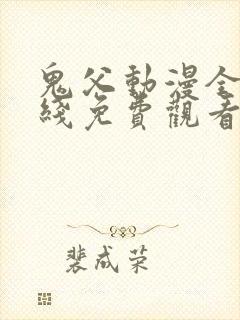 鬼父動漫全
綫免費觀看
裴成荣